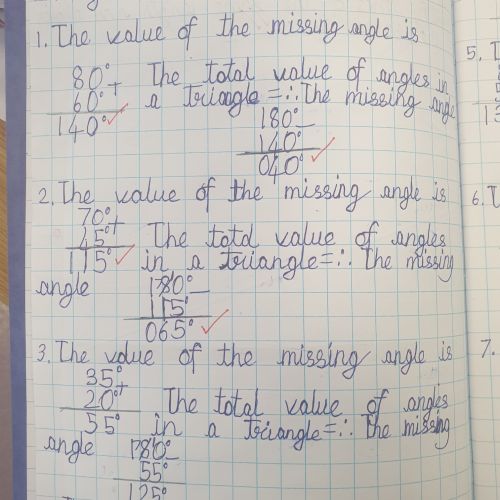 1. The value of the missing angle is
80° +
60°
The total value of angles in
a triangle = ∴ The missing angle
140°
180° –
140°
040°
2. The value of the missing angle is
70° +
45°
115°
The total value of angles
in a triangle = ∴ The missing
angle
180° –
115°
065°
3. The value of the missing angle is
35° +
20°
55°
The total value of angles
in a triangle = ∴ The missing
angle
180° –
55°
125°
5.
6.
7.